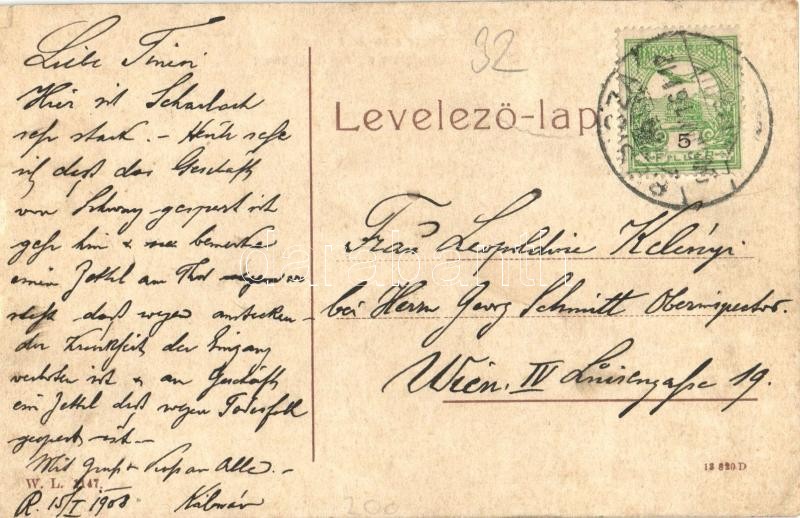 Liebe Tineri
Hier ist Scharlach
sehr stark. – Heute sehe
ich daß das Geschäft
von Schwarz gesperrt ist
gehe hin & bemerke
einen Zettel am Thor
steht daß wegen anstecken-
der Krankheit der Eingang
verboten ist & am Geschäft
ein Zettel daß wegen Todesfall
gesperrt ist –
Mit Gruß & Kuß an Alle. –
R. 15/I 1908 Kálmán
W. L. 1147.
32
Levelező-lap
MAGYAR KIR. POSTA
5
FILLÉR
Frau Leopoldine Kelényi
bei Herrn Georg Schmitt Oberinspector.
Wien. IV Luisengasse 19.
13 820 D
200
darabanth